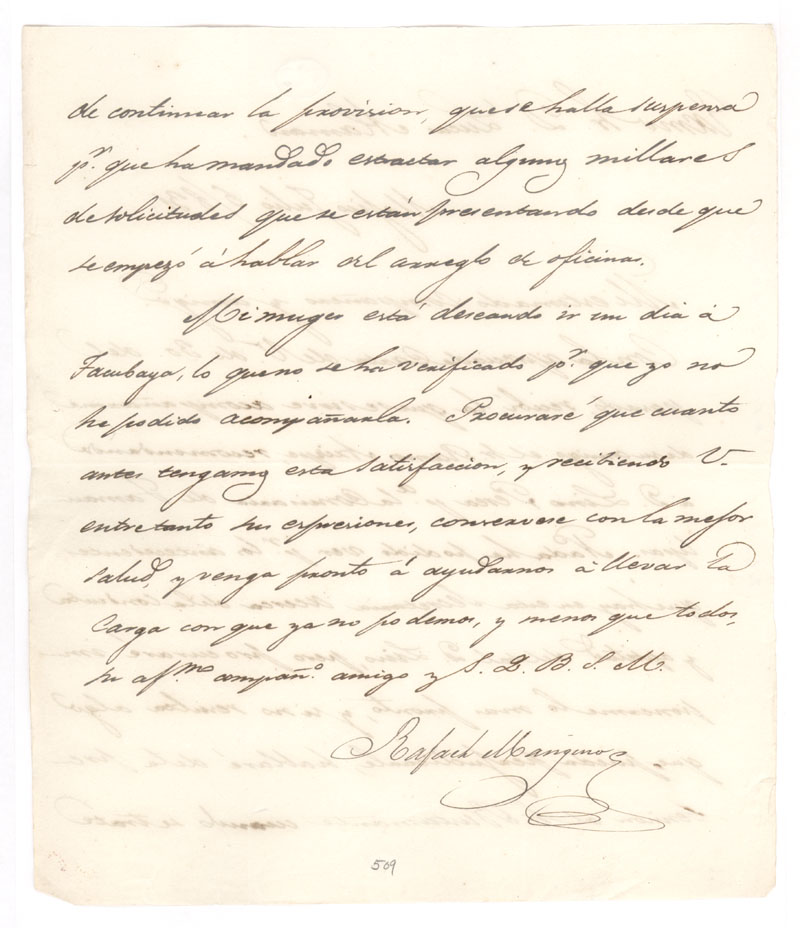 de continuar la provision, que se halla suspensa
pr. que ha mandado estractar algunos millares
de solicitudes que se están presentando desde que
se empezó á hablar del arreglo de oficinas.
Mi muger está deseando ir un dia á
Tacubaya, lo que no se ha verificado pr. que yo no
he podido acompañarla. Procuraré que cuanto
antes tengamos esta satisfaccion, y recibiendo V.
entretanto sus espresiones, conservese con la mejor
salud, y venga pronto á ayudarnos á llevar la
Carga con que ya no podemos, y menos que todos,
su afmo. compañ.o amigo y S. Q. B. S. M.
Rafael Mangino
509